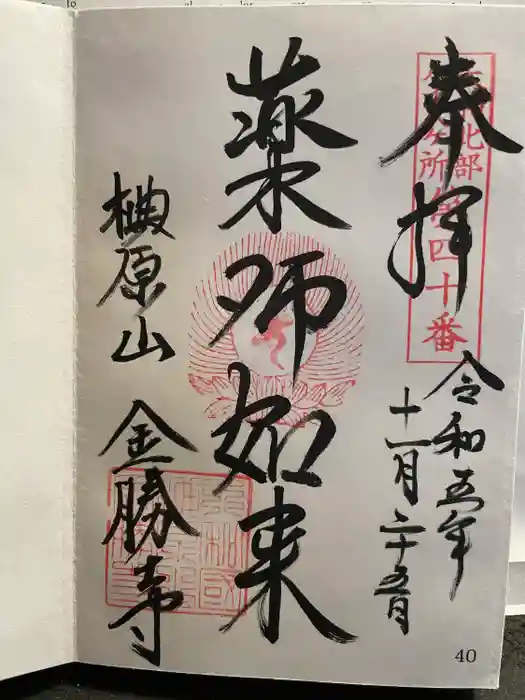 奉拝
第四十番
令和五年
十一月二十五日
薬師如来
椣原山
金勝寺
40